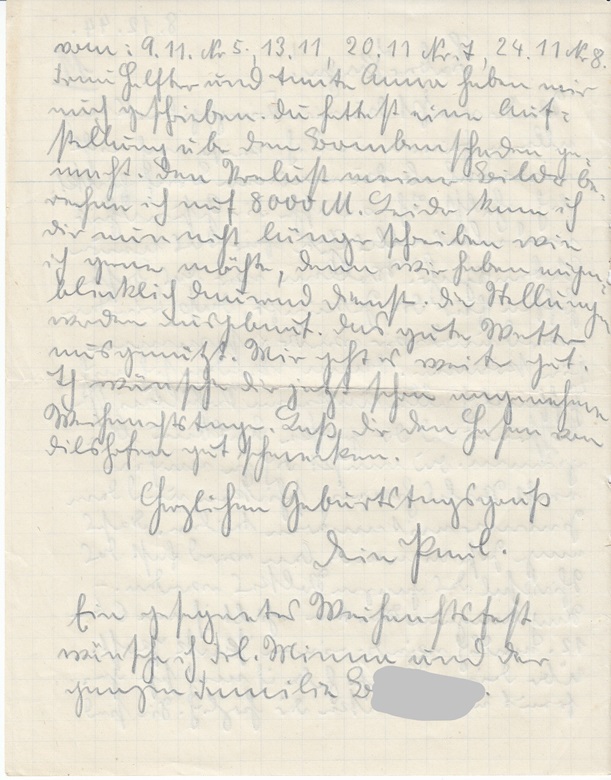 vom: 9.11. Nr 5., 13.11, 20.11 Nr. 7, 24.11 Nr 8.
Frau Helfter und Tante Anna haben mir
auch geschrieben. Du hattest eine Auf-
stellung über den Bombenschaden ge-
macht. Den Verlust meiner Bilder be-
rechne ich auf 8000 M. Leider kann ich
dir nun nicht länger schreiben wie
ich gerne möchte, denn wir haben augen-
blicklich dauernd Dienst. Die Stellungen
werden ausgebaut. Das gute Wetter
ausgenützt. Mir geht es weiter gut.
Ich wünsche dir jetzt schon angenehme
Weihnachtstage. Laß dir den Hasen von
Dilshofen gut schmecken.
Herzlichen Geburtstagsgruß
Dein Paul.
Ein gesegnetes Weihnachtsfest
wünsche ich Frl. Minna und der
ganzen Familie